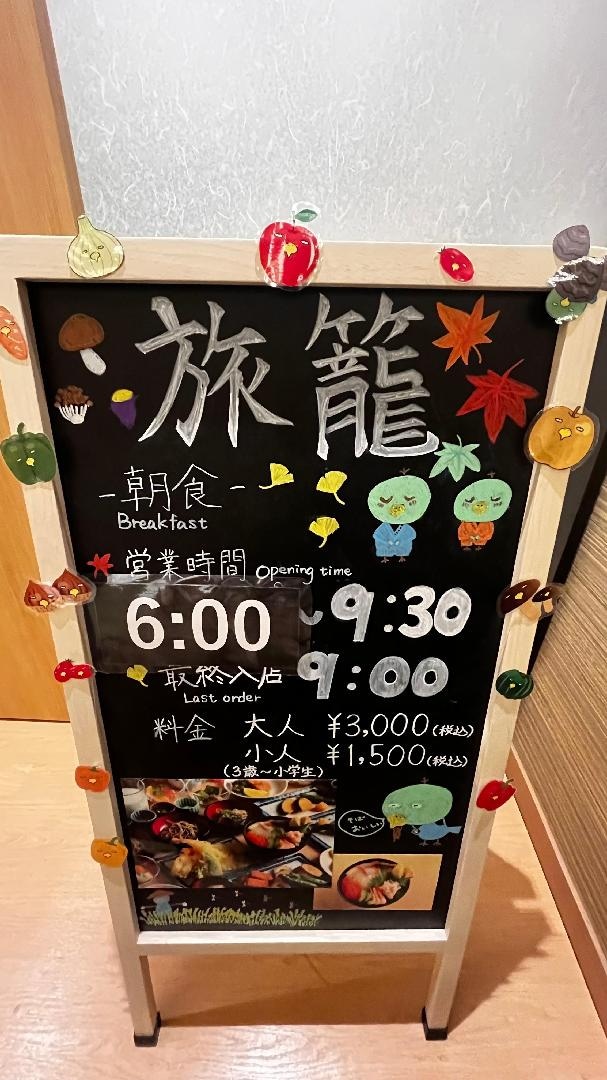 旅籠
-朝食-
Breakfast
営業時間 Opening time
6:00 ~ 9:30
最終入店 9:00
Last order
料金 大人 ¥3,000(税込)
小人 ¥1,500(税込)
(3歳~小学生)
そば
おいしい